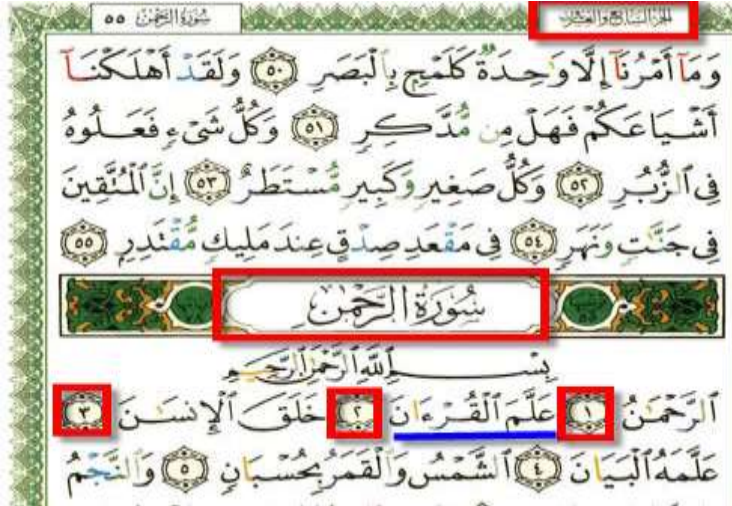 الجزء السابع والعشرون
سُورَةُ الرَّحْمَٰن ٥٥
وَمَآ أَمْرُنَآ إِلَّا وَٰحِدَةٌ كَلَمْحٍۭ بِٱلْبَصَرِ ٥٠ وَلَقَدْ أَهْلَكْنَآ
أَشْيَاعَكُمْ فَهَلْ مِن مُّدَّكِرٍ ٥١ وَكُلُّ شَىْءٍ فَعَلُوهُ
فِى ٱلزُّبُرِ ٥٢ وَكُلُّ صَغِيرٍ وَكَبِيرٍ مُّسْتَطَرٌ ٥٣ إِنَّ ٱلْمُتَّقِينَ
فِى جَنَّٰتٍ وَنَهَرٍ ٥٤ فِى مَقْعَدِ صِدْقٍ عِندَ مَلِيكٍ مُّقْتَدِرٍۭ ٥٥
سُورَةُ الرَّحْمَٰنِ
بِسْمِ ٱللَّهِ ٱلرَّحْمَٰنِ ٱلرَّحِيمِ
ٱلرَّحْمَٰنُ ١ عَلَّمَ ٱلْقُرْءَانَ ٢ خَلَقَ ٱلْإِنسَٰنَ ٣
عَلَّمَهُ ٱلْبَيَانَ ٤ ٱلشَّمْسُ وَٱلْقَمَرُ بِحُسْبَانٍ ٥ وَٱلنَّجْمُ